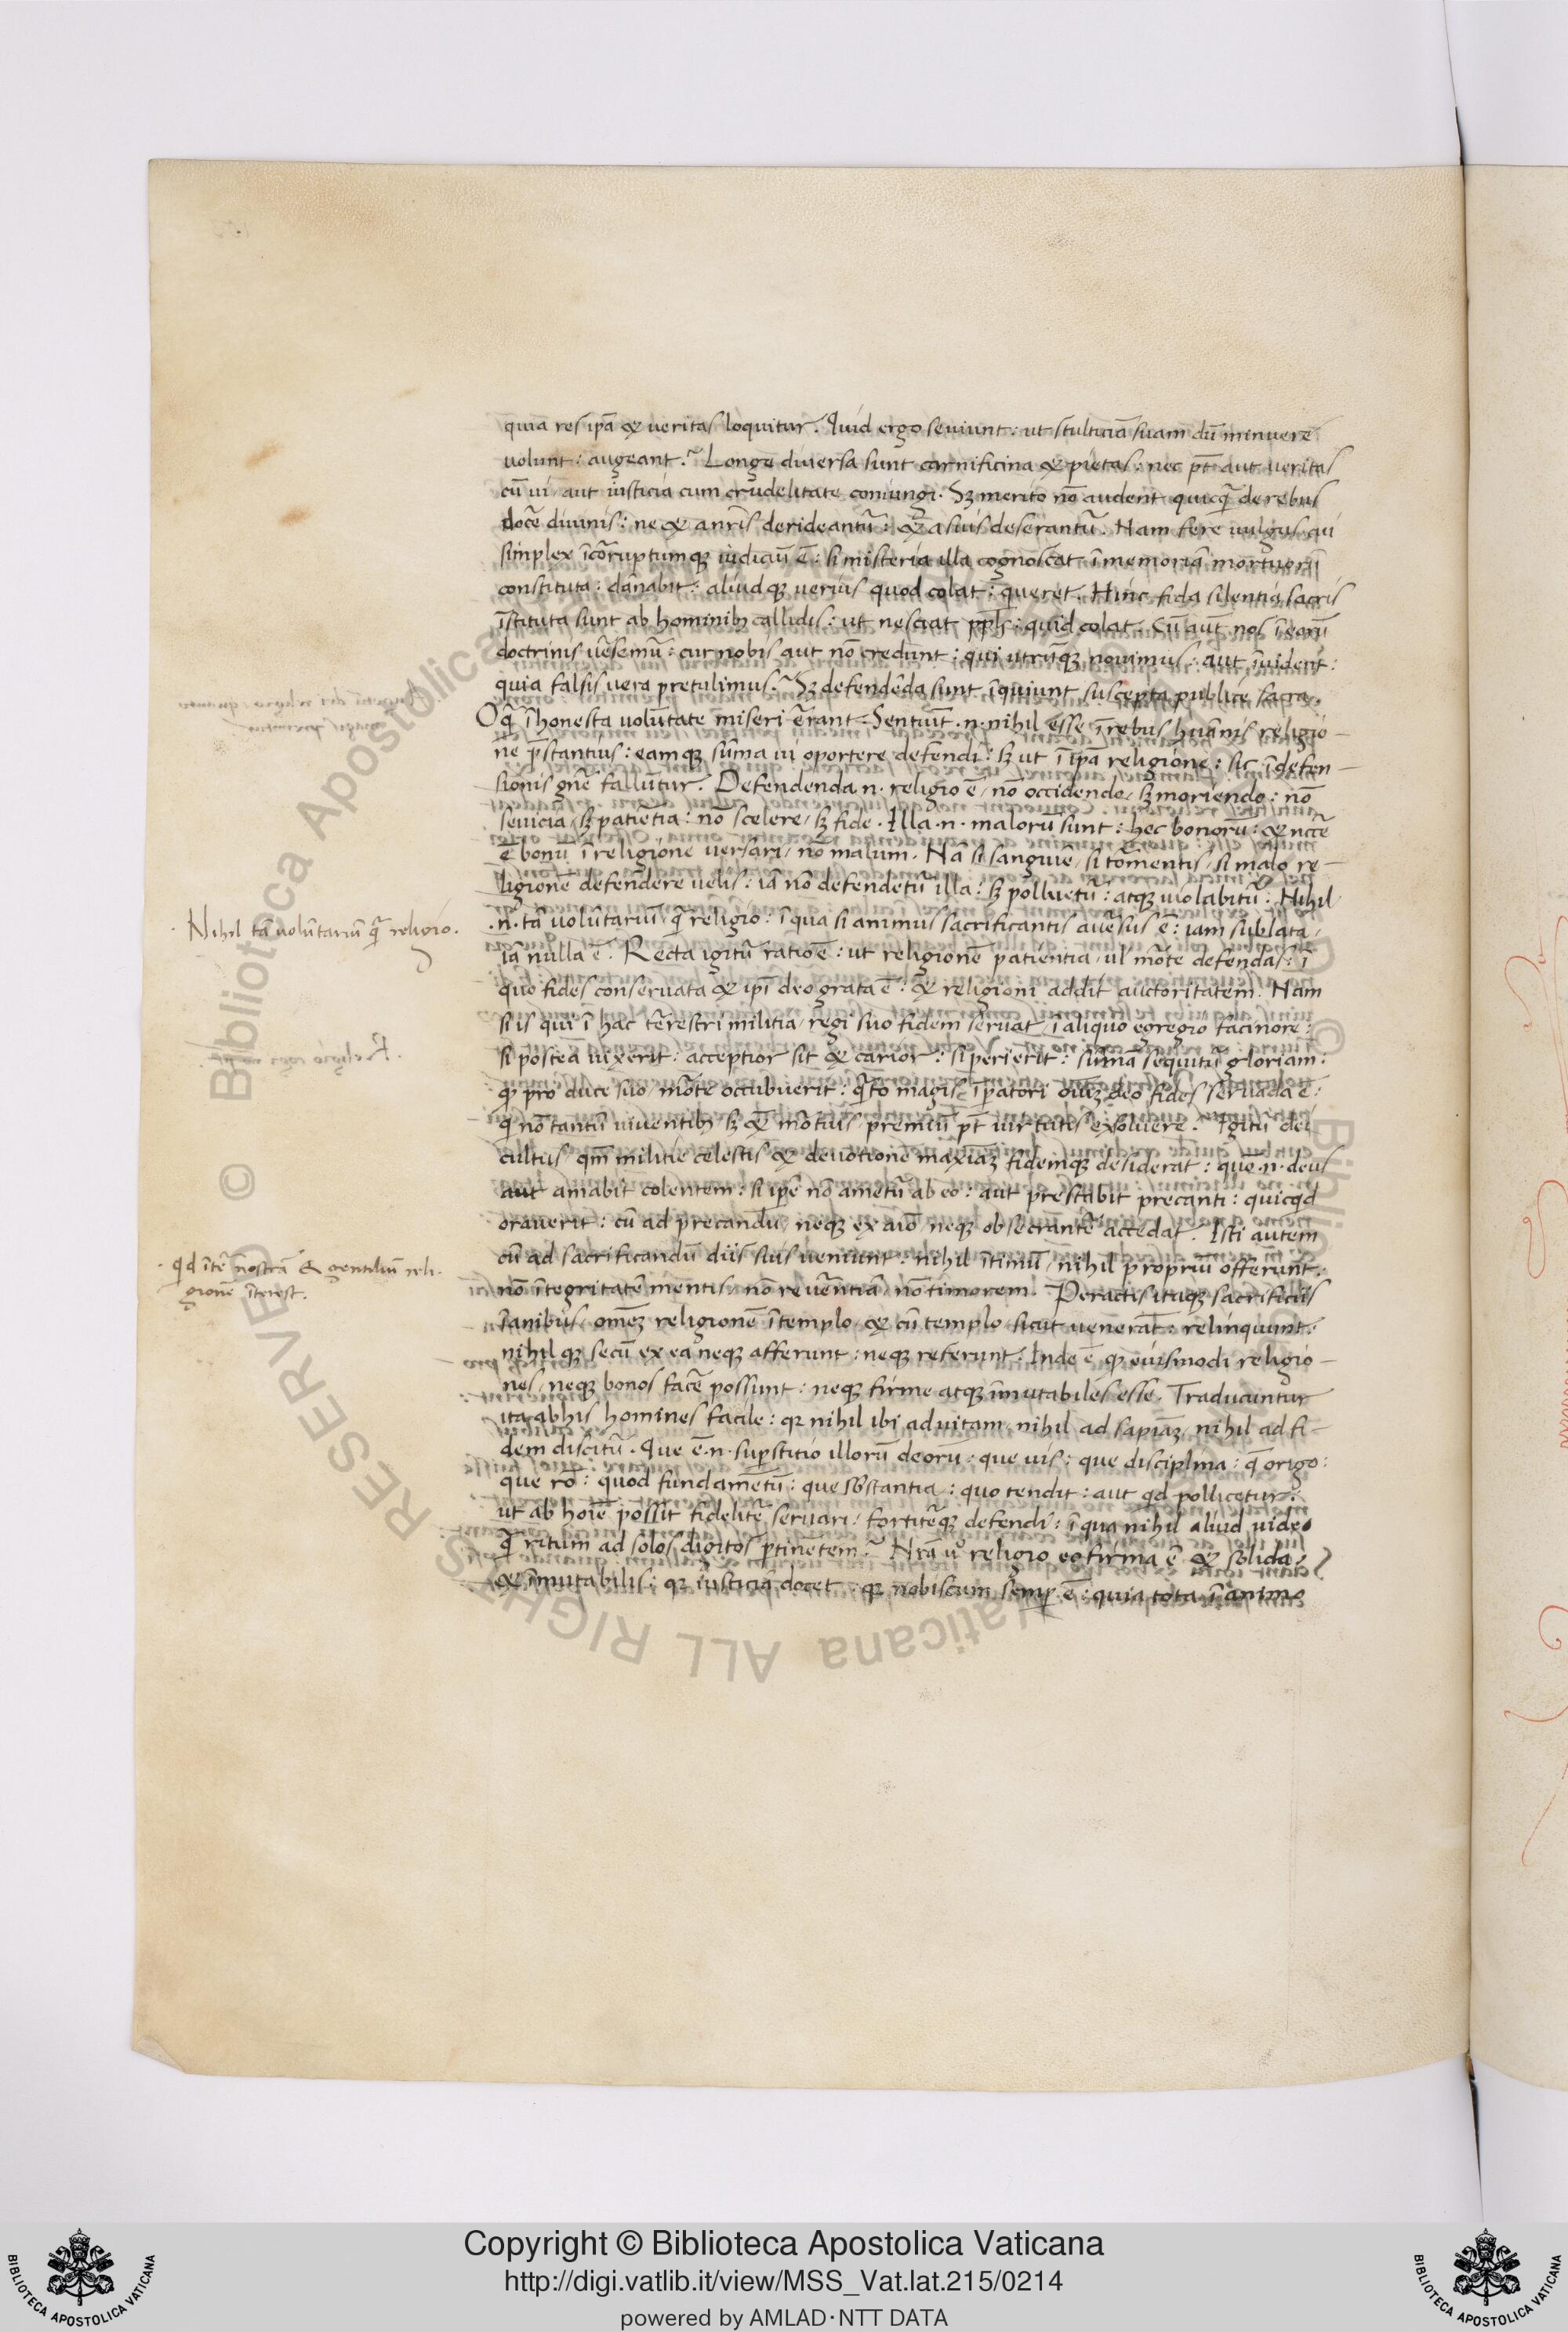 quia res ipā & ueritas loquitur. Quid ergo seuiunt: ut stulticiā suam dū minuere
uolunt: augeant? Longe diuersa sunt carnificina & pietas: nec pt̄ aut ueritas
cū ui/ aut iusticia cum crudelitate coniungi. Sꝫ merito nō audent quicq̄ de rebus
docē diuinis: ne & a nr̄is derideantū: & a suis deserantū. Nam fere uulgus cui
simplex īcorruptumqꝫ iudiciū ē: si misteria illa cognoscat ī memoriā mortuorū
constituta: dānabit: aliudqꝫ uerius quod colat: queret. Hinc fida silentia sacris
īstituta sunt ab hominibꝫ callidis: ut nesciat ppl̄s: quid colat. Cū aūt nos ī earū
doctrinis uersemū: cur nobis aut nō credunt: qui utrūqꝫ nouimus: aut īuident:
quia falsis uera pretulimus? Sꝫ defendēda sunt īquiunt suscepta publice sacra.
O q̄ ī honesta uolūtate miseri errant. Sentiūt .n. nihil esse ī rebus huānis religio-
ne p̄stantius: eamqꝫ sūma ui oportere defendi: sꝫ ut ī ipā religione: sic ī defen-
sionis gn̄e fallūtur. Defendenda n. religio ē/ nō occidendo/ sꝫ moriendo: nō
seuicia/ sꝫ patiētia: nō scelere/ sꝫ fide. Illa .n. malorū sunt: hec bonorū: & nccē
ē bonū ī religione uersari/ nō malum. Nā si sanguīe/ si tormentis/ si malo re-
ligionē defendere uelis: iā nō defendetū illa: sꝫ polluetū: atqꝫ uiolabitū. Nihil
.n. tā uolūtariū q̄ religio: ī qua si animus sacrificantis auersus ē: iam sublata/
iā nulla ē. Recta igitū ratio ē: ut religionē patientia/ ul̄ morte defendas: ī
quo fides conseruata & ipi deo grata ē: & religioni addit auctoritatem. Nam
si is qui ī hac terrestri militia/ regi suo fidem seruat/ ī aliquo egregio facinore:
si postea uixerit: acceptior sit & carior: si perierit: sūmā sequitū gloriam:
qꝫ pro duce suo/ morte occubuerit: q̄to magis īperatori oīuꝫ deo fides seruāda ē:
q̄ nō tantū uiuentibꝫ sꝫ & mortuis/ premiū pt̄ uirtutis exsoluere. Igitū dei
cultus qm̄ militie celestis & deuotionē maxiaꝫ fidemqꝫ desiderat: que .n. deus
aut amabit colentem: si ipē nō ametū ab eo: aut prestabit precanti: quicqd
orauerit: cū ad precandū/ neqꝫ ex aīo/ neqꝫ obsecranter accedat? Isti autem
cū ad sacrificandū diis suis ueniunt: nihil ītimū/ nihil propriū offerunt:
nō ītegritatē mentis/ nō reuerētiā/ nō timorem. Peractis itaqꝫ sacrificiis
īanibus/ omēꝫ religionē ī templo/ & cū templo/ sicut uenerāt: relinquunt:
nihilqꝫ secū ex ea neqꝫ afferunt: neqꝫ referunt. Inde ē qꝫ eiusmodi religio-
nes/ neqꝫ bonos facē possunt: neqꝫ firme atqꝫ īmutabiles esse. Traducuntur
ita ab his homines facile: qꝛ nihil ibi ad uitam/ nihil ad sapiāꝫ/ nihil ad fi-
dem discitū. Que ē .n. supstitio illorū deorū: que uis: que disciplina: q̄ origo:
que rō: quod fundamētū: que sb̄stantia: quo tendit: aut qd pollicetur:
ut ab hoīe possit fidelitē seruari: fortitēqꝫ defendi: ī qua nihil aliud uideo
q̄ ritum ad solos digitos ptinētem? Nrā uº religio eo firma ē & solida/
& īmutabilis: qꝛ iusticiā docet: qꝛ nobiscum semp ē: quia tota ī animo
. Nihil tā uolūtariū q̄ religio.
. qd īter nostrā & gentiliū reli-
gionē īterest.
RESERVED © Biblioteca Apostolica Vaticana ALL RIGHTS
Copyright © Biblioteca Apostolica Vaticana
http://digi.vatlib.it/view/MSS_Vat.lat.215/0214
powered by AMLAD·NTT DATA
BIBLIOTECA APOSTOLICA VATICANA
BIBLIOTECA APOSTOLICA VATICANA